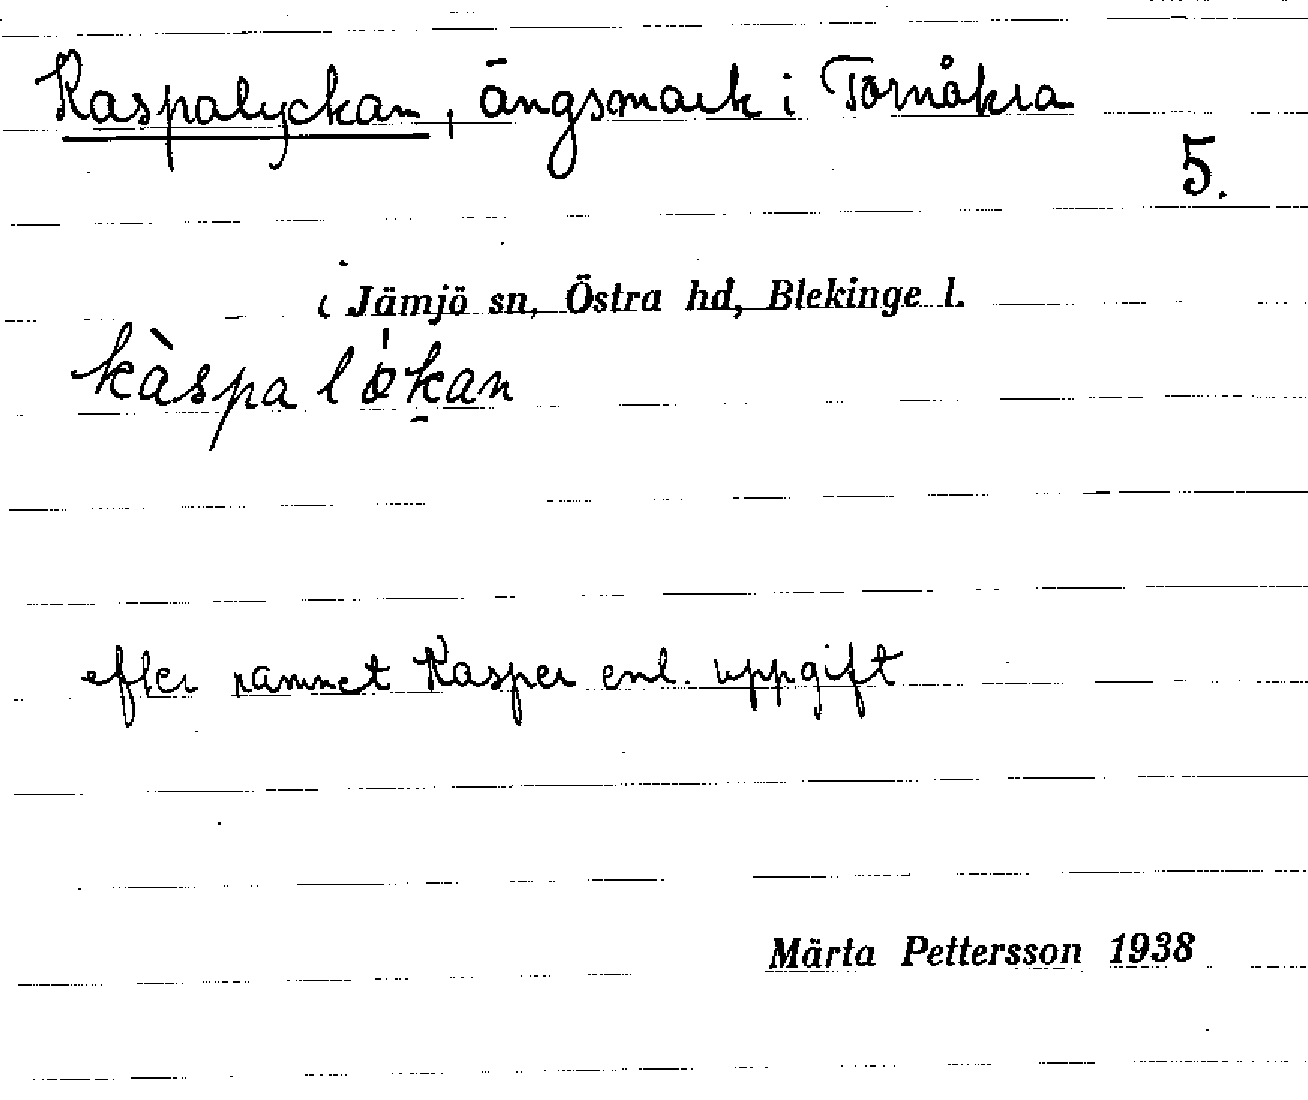 Kaspalyckan, ängsmark i Törnåkra
5.
i Jämjö sn, Östra hd, Blekinge l.
kàspa lǿk̠an
efter namnet Kasper enl. uppgift
Märta Pettersson 1938